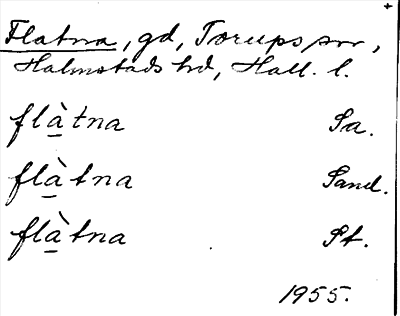 Flatna, gd, Torups sn,
Halmstads hd, Hall. l.
flàtna Sa.
flàtna Sand.
flàtna St.
1955.